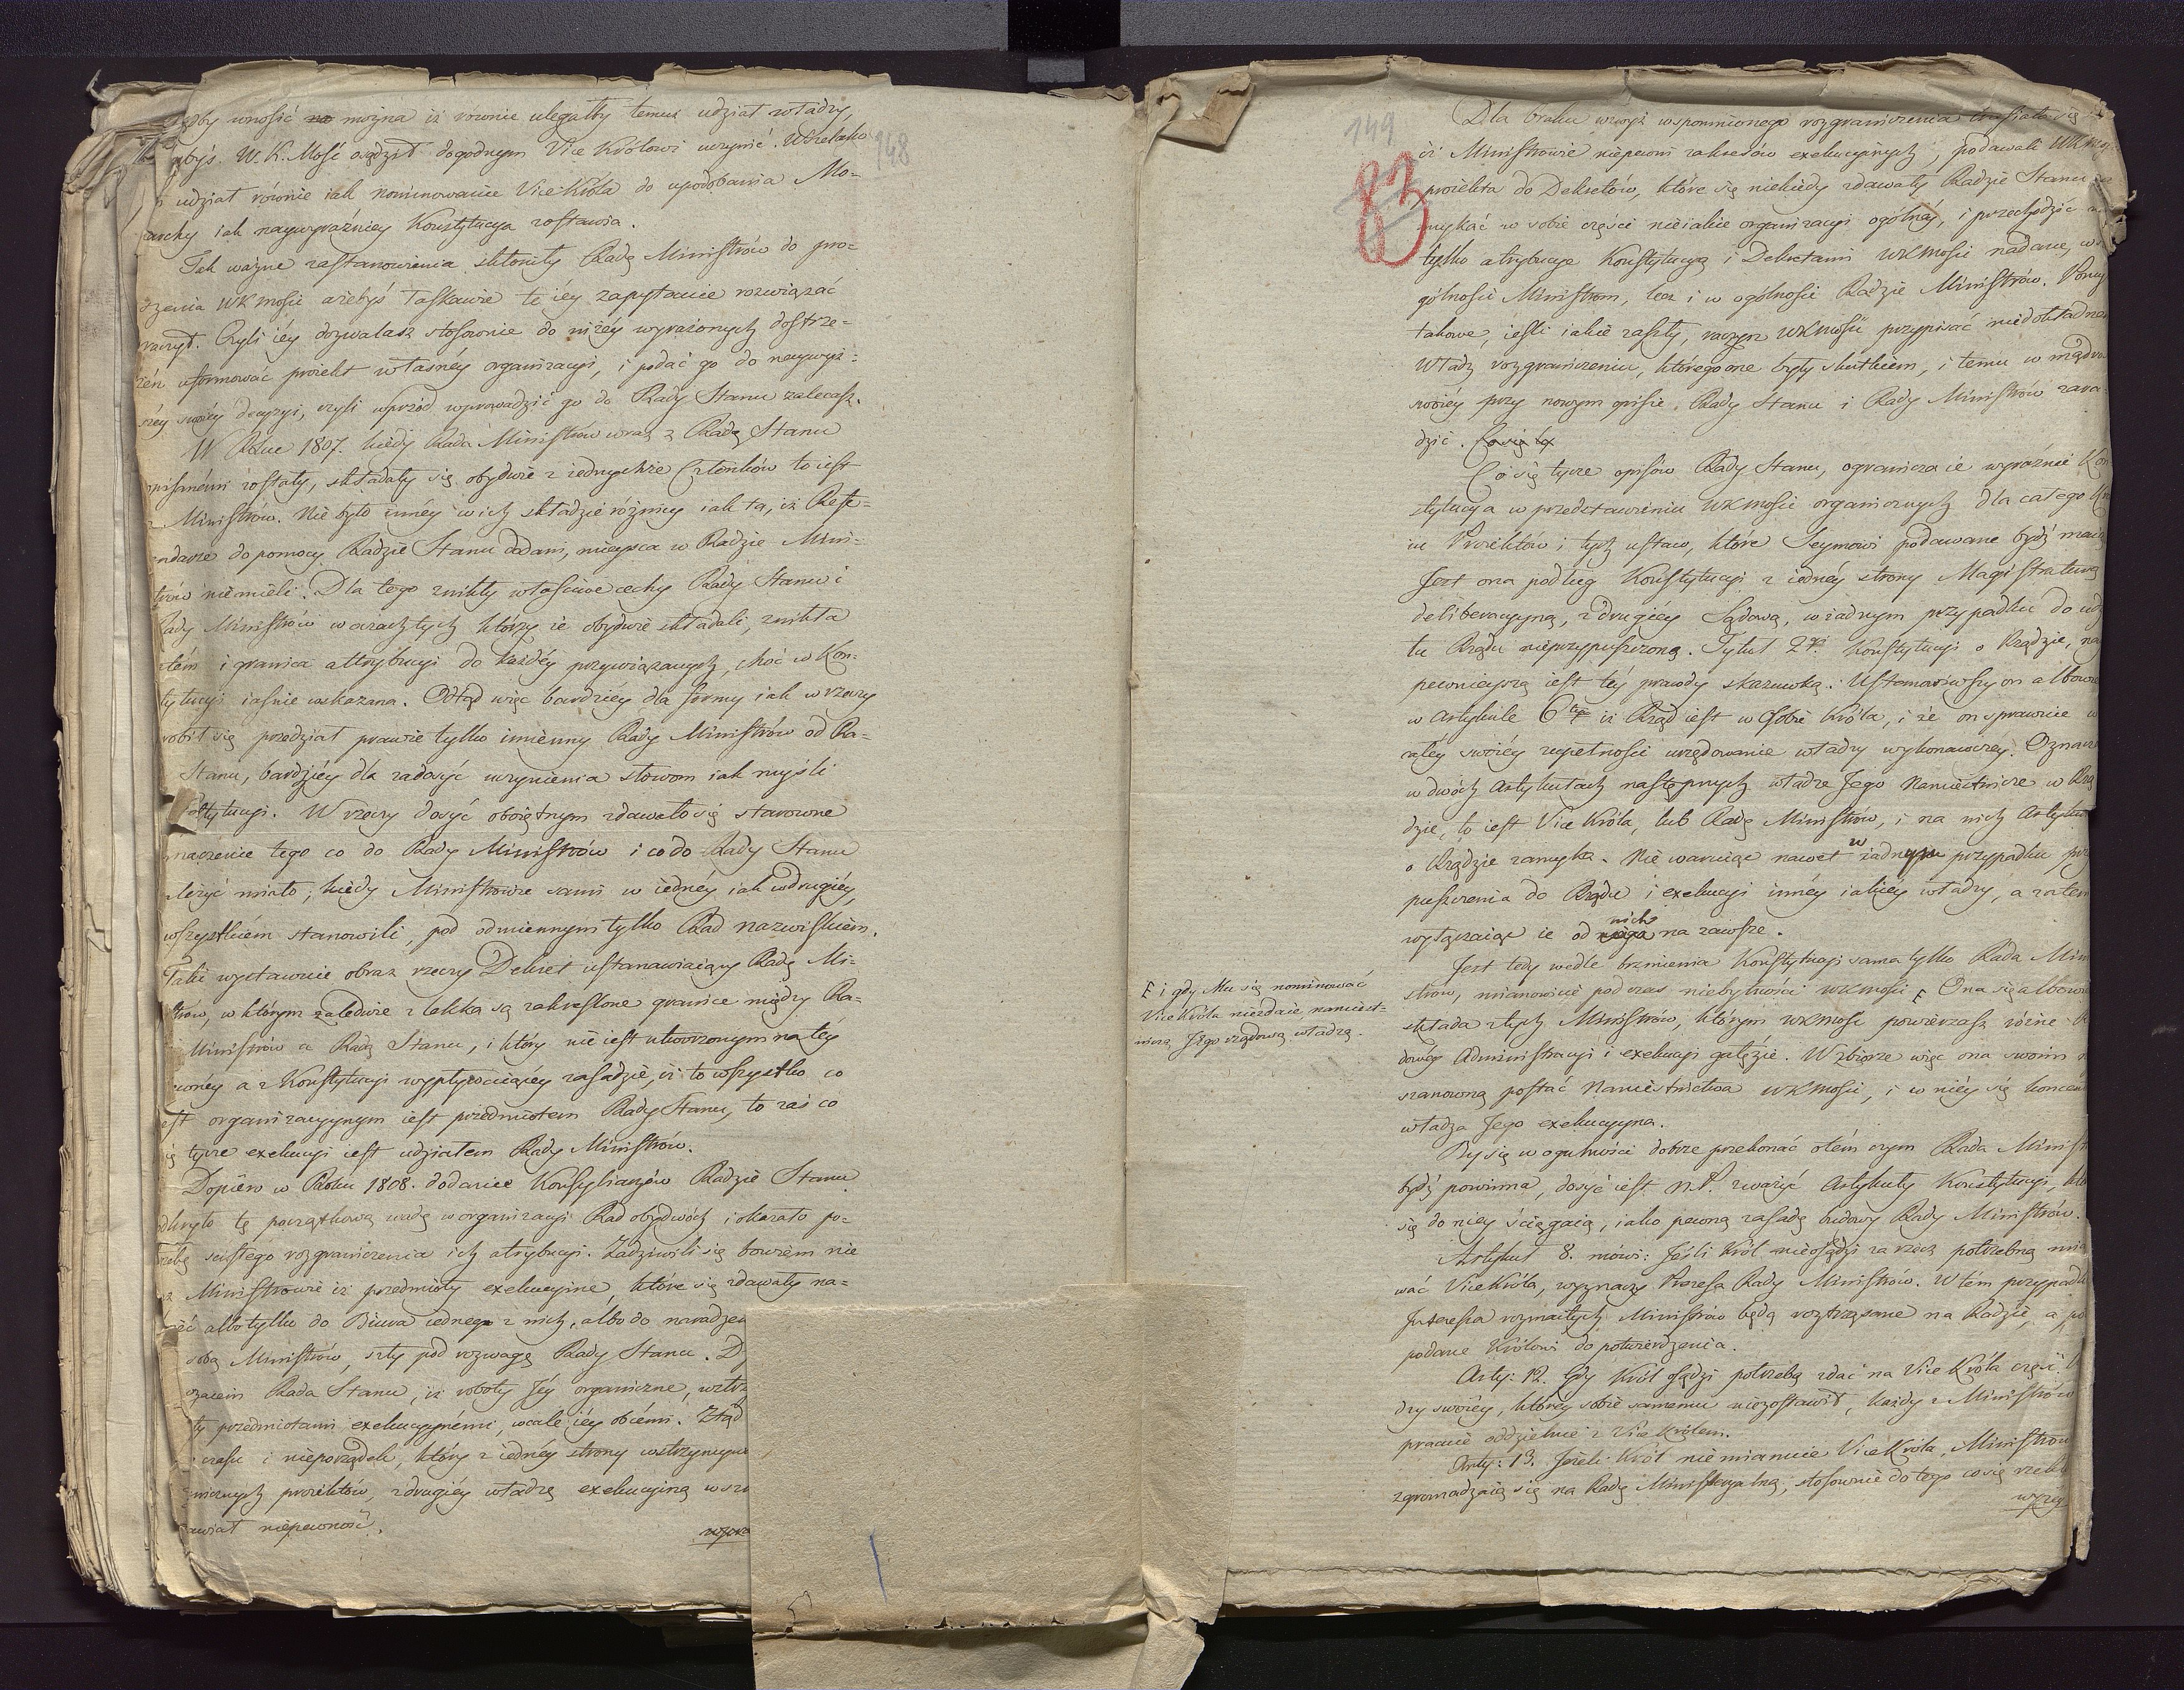 wnosić na można iż rownie ulegałby temuż udział władzy,
W. K. Mość osądził dogodnym Vice Królowi uczynić. Wszelako
148
udział równie iak nominowanie ViceKróla do upodobania Mo-
narchy iak naywyraźniey Konstytucya zostawia.
Tak ważne zastanowienia skłoniły Radę Ministrów do pro-
WKMości ażebyś łaskawie te iéy zapytanie rozwiązać
raczył. Czyli iéy dozwalasz stosownie do niżéy wyrażonych dostrze-
żeń uformować proiekt własnéy organizacyi, i podać go do naywyż-
széy swoiéy decyzyi, czyli wprzód wprowadzić go do Rady Stanu zalecasz.
W Roku 1807. kiedy Rada Ministrów wraz z Radą Stanu
opisanémi zostały, składały się obydwie z iednychże Członków to iest
z Ministrów. Nie było innéy w ich składzie różnicy iak ta, iż Refe-
rendarze do pomocy Radzie Stanu dodani, mieysca w Radzie Mini-
strów niemieli. Dla tego znikły właściwe cechy Rady Stanu i
Rady Ministrów w oczach tych którzy ie obydwie składali, znikła
zatém i granica attrybucyi do każdéy przywiązanych, choć w Kon-
stytucyi iaśnie wskazana. Odtąd więc bardziéy dla formy iak w rzeczy
zrobił się przedział prawie tylko imienny Rady Ministrów od Ra-
Stanu, bardziéy dla zadosyć uczynienia słowom iak myśli
Konstytucyi. W rzeczy dosyć oboiętnym zdawało się starowne
oznaczenie tego co do Rady Ministrów i co do Rady Stanu
należyć miało; kiedy Ministrowie sami w iednéy iak w drugiéy,
wszystkiém stanowili, pod odmiennym tylko Rad nazwiskiem.
Taki wystawuie obraz rzeczy Dekret ustanawiaiący Radę Mi-
nistrów, w którym zaledwie z lekka są zakreślone granice między Ra-
Ministrów a Radą Stanu, i który nie iest utworzonym na téy
pewnéy a z Konstytucyi wypływaiącéy zasadzie, iż to wszystko co
iest organizacyynym iest przedmiotem Rady Stanu, to zaś co
się tycze exekucyi iest udziałem Rady Ministrów.
Dopiéro w Roku 1808. dodanie Konsyliarzów Radzie Stanu
odkryło tę początkową wadę w organizacyi Rad obydwóch i okazało po-
trzebę ścisłego rozgraniczenia ich atrybucyi. Zadziwili się bowiem nie
Ministrowie iż przedmioty exekucyine które się zdawały na-
leżeć albo tylko do Biura iednego z nich, albo do naradzen
sobą Ministrów, szły pod rozwagę Rady Stanu. D
Rada Stanu, iż roboty Jéy organiczne,
przedmiotami exekucyynémi, wcale iéy obcémi. Ztąd
czasu i nieporządek, który z iednéy strony wstrzymywa
organicznych proiektów, z drugiéy władzę exekucyiną w
niepewność.

149
83
Dla braku wzwyż wspomnionego rozgraniczenia trafiało się
iż Ministrowie niepewni zakresów exekucyinych, podawali WKMos
proiekta do Dekretów, które się niekiedy zdawały Radzie Stanu za
mykać w sobie części nieiakie organizacyi ogólnéy, i przechodzić nie
tylko atrybucye Konstytucyą i Dekretami WKMości nadane, w szcze
gólności Ministrom, lecz i w ogólności Radzie Ministrów. Pomy
takowe, ieśli iakie zaszły, raczysz WKMość przypisać niedokładnem
władz rozgraniczeniu, którego one były skutkiem, i temu w mądroś
swoiéy przy nowym opisie Rady Stanu i Rady Ministrów zara
dzić. Co się ty
Co się tycze opisów Rady Stanu, ogranicza ie wyraźnie Kon
stytucya w przedstawieniu WKMości organicznych dla całego Kra
iu Proiektów i tych ustaw, które Seymowi podawane bydź maią
Jest ona podług Konstytucyi z iednéy strony Magistraturą
deliberacyyną, z drugiéy Sądową, w żadnym przypadku do udz
łu Rządu nieprzypuszczoną. Tytuł 2gi Konstytucyi o Rządzie, nay
pewnieyszą iest téy prawdy skazuwką: Ustanowiwszy on albowie
w Artykule 6tym iż Rząd iest w Osobie Króla, i że on sprawuie w
całey swoiéy zupełności urzędowanie władzy wykonawczey. Oznacz
w dwóch Artykułach następnych władze Jego Namiestnicze w Rzą
dzie, to iest ViceKróla, lub Radę Ministrów, i na nich Artykuł
o Rządzie zamyka. Nie waruiąc nawet w żadnym przypadku przy
puszczenia do Rządu i exekucyi innéy iakiey władzy, a zatem
wyłączaiąc ie od niego nich na zawsze.
Jest tedy wedle brzmienia Konstytucyi sama tylko Rada Mini
strów, mianowicie pod czas niebytności WKMości F Ona się albowie
F i gdy Mu się nominować
Vice Króla niezdaie, namiest-
niczą Jego rządową władzą.
składa z tych Ministrów, którym WKMość powierzasz różne
dowey Administracyi i exekucyi gałęzie. W zbiorze więc ona swoim
szanowną postać Namiestnictwa WKMości, i w niéy się koncen
władza Jego exekucyyna.
By się w ogulności dobrze przekonać o tém czym Rada Minist
bydź powinna, dosyć iest N.P. zważyć Artykuły Konstytucyi, któ
się do niey ściągaią, iako pewną zasadę budowy Rady Ministrów.
Artykuł 8. mówi: Jeśli Król nieosądzi za rzecz potrzebną mia
wać ViceKróla, wyznaczy Prezesa Rady Ministrów. W tém przypadk
Interesa rozmaitych Ministrów będą roztrząsane na Radzie, a po
podane Królowi do potwierdzenia.
Arty: 12. Gdy Król osądzi potrzebą zdać na Vice Króla część
dzy swoiéy, którey sobie samemu niezostawił, każdy z Ministrów
pracuie oddzielnie z Vice Królem.
Arty: 13. Jeżeli Król niemianuie ViceKróla, Ministrow
zgromadzaią się na Radę Ministeryalną, stosownie do tego co się rzekł
wyżey